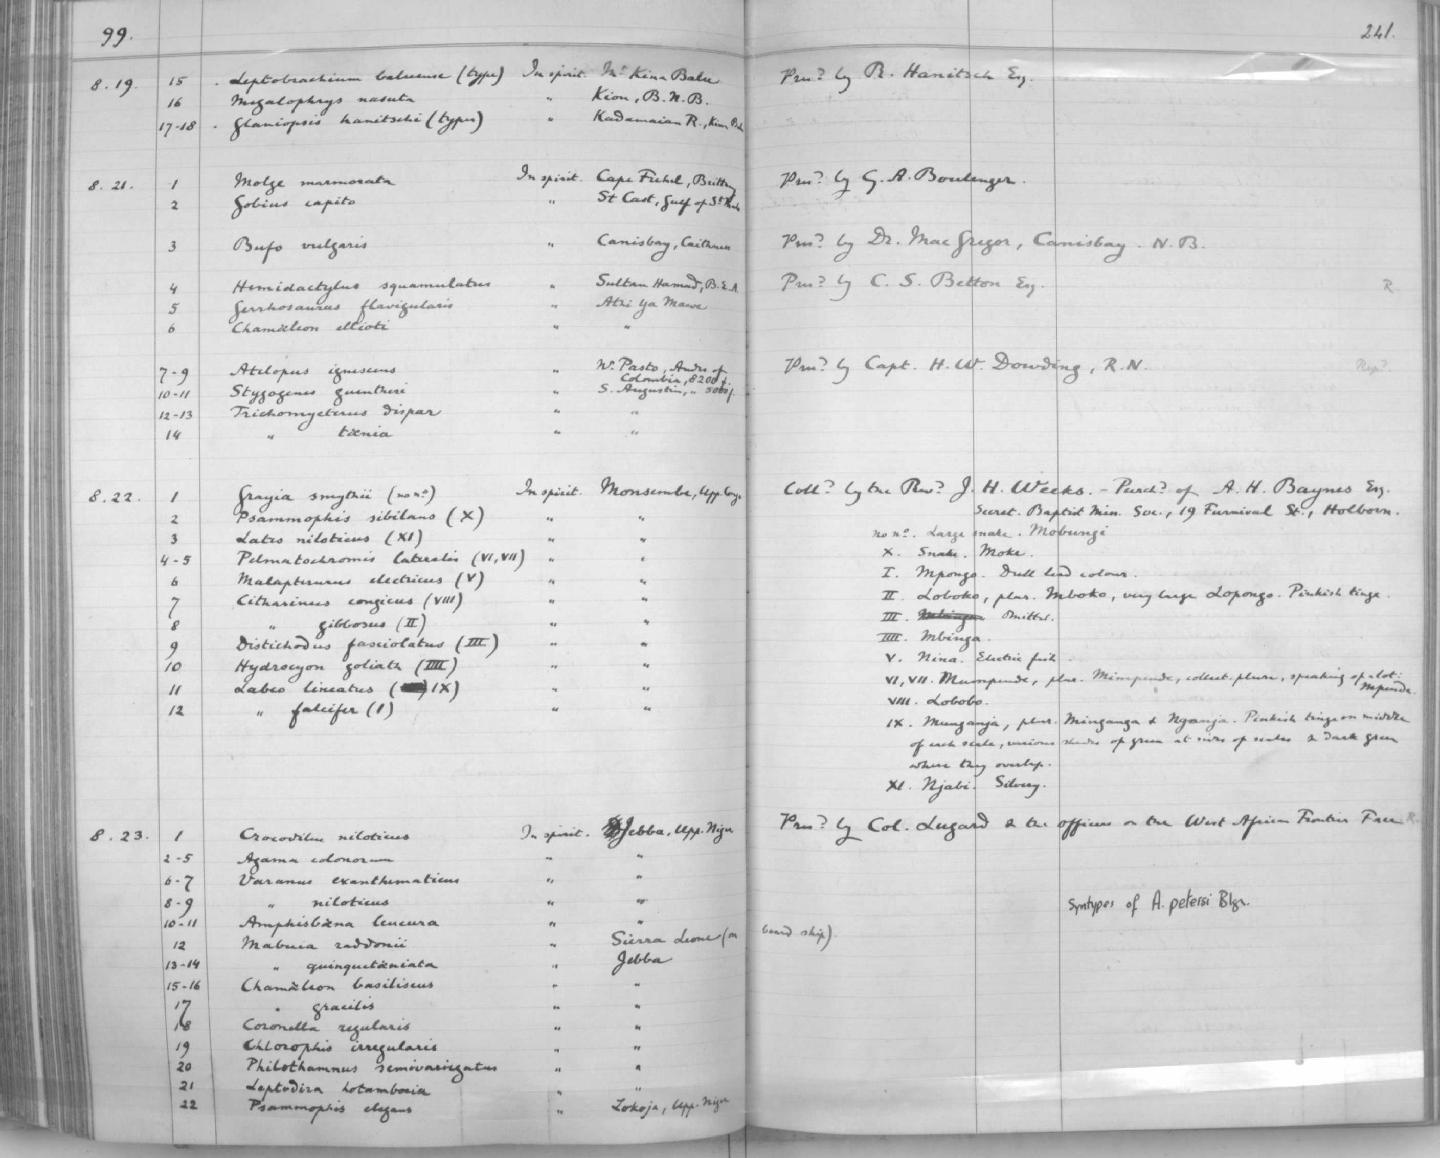 99. 241.
8.19. 15 Leptobrachium baluense (type) In spirit. Mt Kina Balu Pres.d by R. Hanitsch Esq.
16 Megalophrys nasuta " Kion, B.N.B.
17-18 Glaniopsis hanitschi (types) " Kadamaian R., Kina Balu
8.21. 1 Molge marmorata In spirit. Cape Frehel, Brittany Pres.d by G. A. Boulenger.
2 Gobius capito " St Cast, Gulf of St
3 Bufo vulgaris " Canisbay, Caithness Pres.d by Dr. MacGregor, Canisbay. N.B.
4 Hemidactylus squamulatus " Sultan Hamud, B.E.A. Pres.d by C. S. Betton Esq. R
5 Gerrhosaurus flavigularis " Atri Ya Mawe
6 Chamæleon ellioti " "
7-9 Atelopus ignescens " W. Pasto, Andes of Colombia, 8200 f. Pres.d by Capt. H. W. Dowding, R.N.
10-11 Stygogenes guentheri " S. Augustin, " 5000 f.
12-13 Trichomycterus dispar " "
14 " tænia " "
8.22. 1 Grayia smythii (no no.) In spirit. Monsembe, Upp. Congo Coll.d by the Rev.d J. H. Weeks. - Purch.d of A. H. Baynes Esq.
Secret. Baptist Min. Soc., 19 Furnival St., Holborn.
2 Psammophis sibilans (X) " "
no no. Large snake. Mobungi
3 Lates niloticus (XI) " "
X. Snake. Moke.
4-5 Pelmatochromis lateralis (VI, VII) " "
I. Mpongo. Dull lead colour.
6 Malapterurus electricus (V) " "
II. Loboko, plur. Mboko, very large Lopongo. Pinkish tinge.
7 Citharinus congicus (VIII) " "
III. Mbinga Omitted.
8 " gibbosus (II) " "
IIII. Mbinga.
9 Distichodus fasciolatus (III) " "
V. Nina. Electric fish
10 Hydrocyon goliath (IIII) " "
VI, VII. Mumpende, plur. Mimpende, collect. plur., speaking of a lot: Mpende.
11 Labeo lineatus (IX) " "
VIII. Lobobo.
12 " falcifer (I) " "
IX. Munganja, plur. Minganga & Nganja. Pinkish tinge on middle
of each scale, various shades of green at sides of scales & dark green
where they overlap.
XI. Njabi. Silvery.
8.23. 1 Crocodilus niloticus In spirit. Jebba, Upp. Niger Pres.d by Col. Lugard & the officers on the West African Frontier Force R.
2-5 Agama colonorum " "
6-7 Varanus exanthematicus " "
8-9 " niloticus " " Syntypes of A. petersi Blgr.
10-11 Amphisbæna leucura " "
12 Mabuia raddonii " Sierra Leone (on board ship).
13-14 " quinquetæniata " Jebba
15-16 Chamæleon basiliscus " "
17 " gracilis " "
18 Coronella regularis " "
19 Chlorophis irregularis " "
20 Philothamnus semivariegatus " "
21 Leptodira hotamboeia " "
22 Psammophis elegans " Lokoja, Upp. Niger